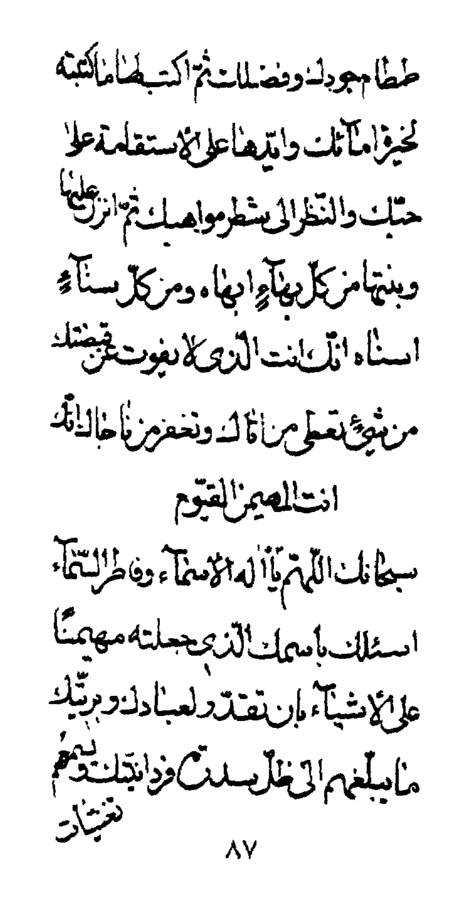 طمطام جودك وفضلك ثمّ اكتب لها ما كتبته
لخيرة امائك وايّدها على الاستقامة على
حبّك والنّظر الى شطر مواهبك ثمّ انزل عليها
وبنتها من كلّ بهآءٍ ابهاه ومن كلّ سنآءٍ
اسناه انّك انت الّذى لا يفوت عن قبضتك
من شیءٍ تعطى من اتاك وتغفر من ناجاك انّك
انت المهيمن القيّوم
سبحانك اللّهمّ يآ اله الاسمآء وفاطر السّمآء
اسئلك باسمك الّذى جعلته مهيمنًا
على الاشيآء بان تقدّر لعبادك وبريّتك
ما يبلّغهم الى ظلّ سدرة فردانيّتك ويسمعهم
تغنّيات
٨٧